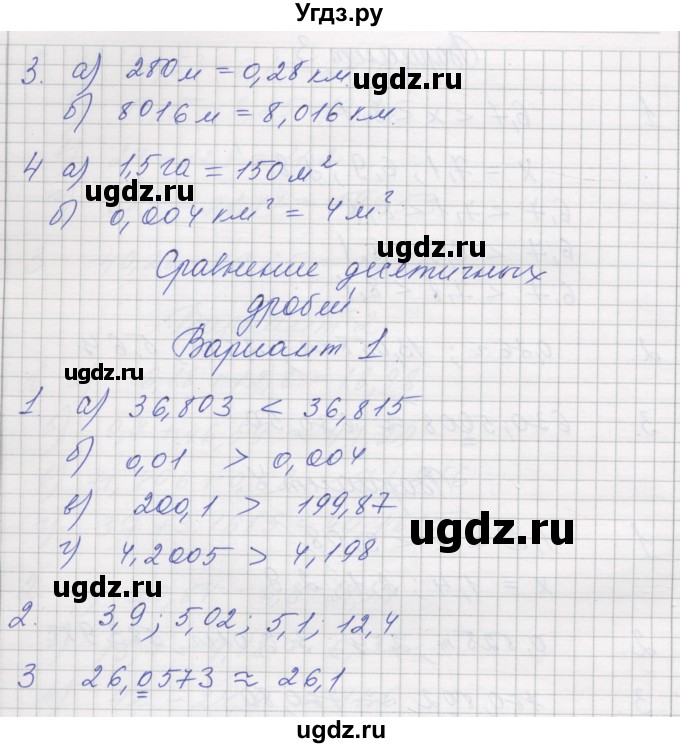 Угдз.ру
3. а) 280 м = 0,28 км.
ugdz.ru
б) 8016 м = 8,016 км.
4 а) 1,5 га = 150 м²
ugdz.ru
б) 0,004 км² = 4 м²
ugdz.ru
Сравнение десятичных
дробей.
ugdz.ru
Вариант 1.
ugdz.ru
1 а) 36,803 < 36,815
б) 0,01 > 0,004
в) 200,1 > 199,87
ugdz.ru
г) 4,2005 > 4,198
ugdz.ru
2. 3,9; 5,02; 5,1; 12,4.
ugdz.ru
3 26,0573 ≈ 26,1
ugdz.ru
ugdz.ru